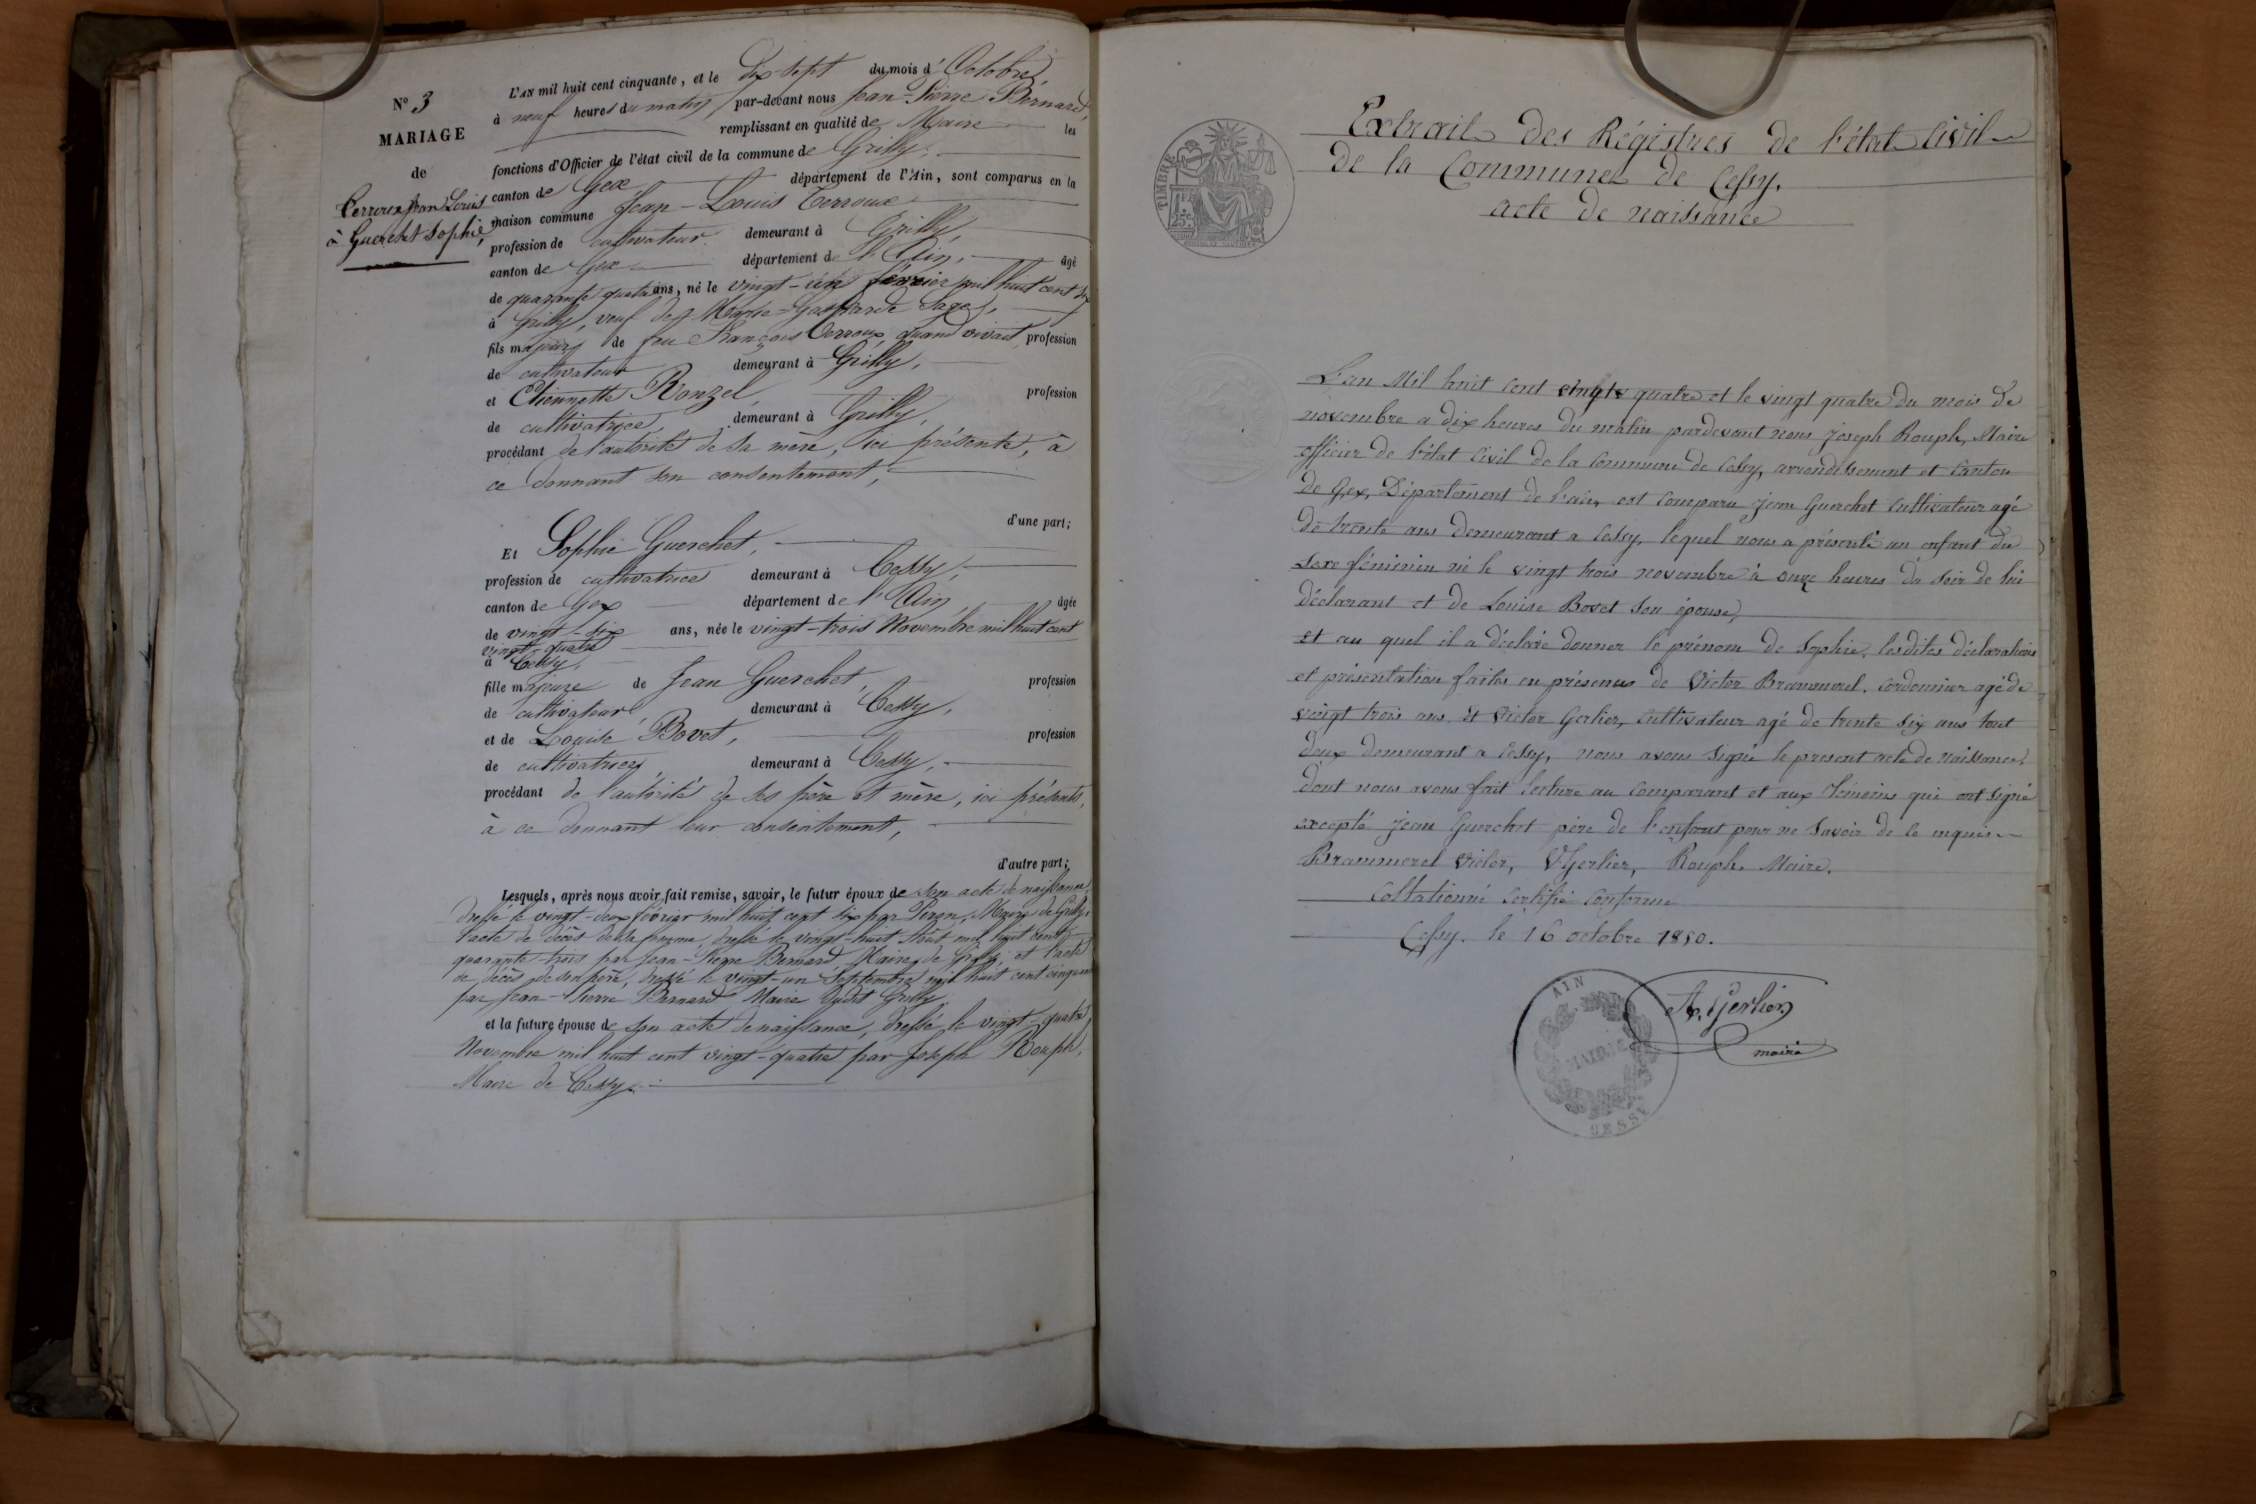 N° 3
MARIAGE
de
Terroux Jean Louis
à Guerchet Sophie,
L'AN mil huit cent cinquante, et le Dix-sept du mois d'Octobre,
à neuf heures du matin, par-devant nous Jean-Pierre Bernard,
remplissant en qualité de Maire les
fonctions d'Officier de l'état civil de la commune de Grilly,
canton de Gex département de l'Ain, sont comparus en la
maison commune Jean-Louis Terroux
profession de cultivateur demeurant à Grilly,
canton de Gex département de l'Ain, âgé
de quarante quatre ans, né le vingt-un février mil huit cent six
à Grilly, veuf de Marie-Gasparde Sage,
fils majeur de feu François Terroux, quand vivait, profession
de cultivateur demeurant à Grilly,
et Etiennette Ronzel, profession
de cultivatrice, demeurant à Grilly,
procédant de l'autorité de sa mère, ici présente, à
ce donnant son consentement,
d'une part;
Et Sophie Guerchet,
profession de cultivatrice demeurant à Cessy,
canton de Gex département de l'Ain, âgée
de vingt-six ans, née le vingt-trois Novembre mil huit cent
vingt-quatre
à Cessy,
fille majeure de Jean Guerchet, profession
de cultivateur demeurant à Cessy,
et de Louise Bovet, profession
de cultivatrice, demeurant à Cessy,
procédant de l'autorité de ses père et mère, ici présents,
à ce donnant leur consentement,
d'autre part;
Lesquels, après nous avoir fait remise, savoir, le futur époux de son acte de naissance,
dressé le vingt-deux février mil huit cent six par Peron, Maire de Grilly,
l'acte de décès de sa femme, dressé le vingt-huit Août mil huit cent
quarante-trois par Jean-Pierre Bernard Maire de Grilly; et l'acte
de décès de son père, dressé le vingt-un Septembre mil huit cent cinquante
par Jean-Pierre Bernard Maire dudit Grilly
et la future épouse de son acte de naissance, dressé le vingt-quatre
Novembre mil huit cent vingt-quatre par Joseph Rouph,
Maire de Cessy.
TIMBRE
Extrait des Régistres de l'état Civil
de la Commune de Cessy.
acte de naissance
L'an Mil huit cent vingts quatre et le vingt quatre du mois de
novembre a dix heures du matin pardevant nous Joseph Rouph, Maire
officier de l'état Civil de la Commune de Cessy, arrondissement et Canton
de Gex, Département de l'ain, est Comparu Jean Guerchet Cultivateur agé
de trente ans demeurant a Cessy, lequel nous a présenté un enfant du
sexe féminin né le vingt trois novembre à onze heures du soir de lui
déclarant et de Louise Bovet son épouse,
et au quel il a déclaré donner le prénom de Sophie. lesdites déclarations
et présentation faites en présence de Victor Brammerel. Cordonnier agé de
vingt trois ans et Victor Gerlier, Cultivateur agé de trente six ans tout
deux demeurant a Cessy, nous avons signé le present acte de naissance,
dont nous avons fait lecture au Comparant et aux Témoins qui ont signé
excepté Jean Guerchet père de l'enfant pour ne savoir de ce enquis
Brammerel Victor, V. Gerlier, Rouph. Maire.
Collationné Certifié Conforme
Cessy. le 16 octobre 1850.
AIN
MAIRIE
CESSY
Gerlier
maire